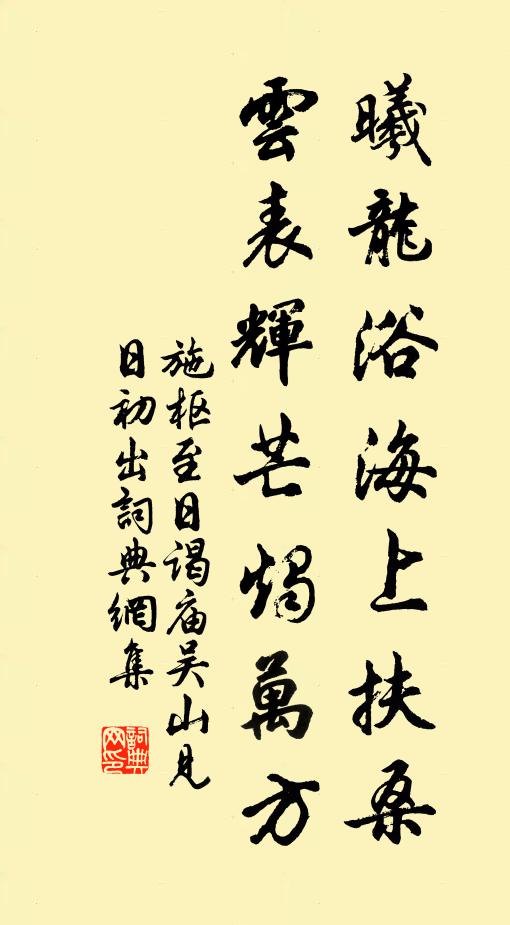 曦龍浴海上扶桑
雲表輝芒燭萬方
施枢至日谒庙吴山見
日初出詞典網集
詞典網印